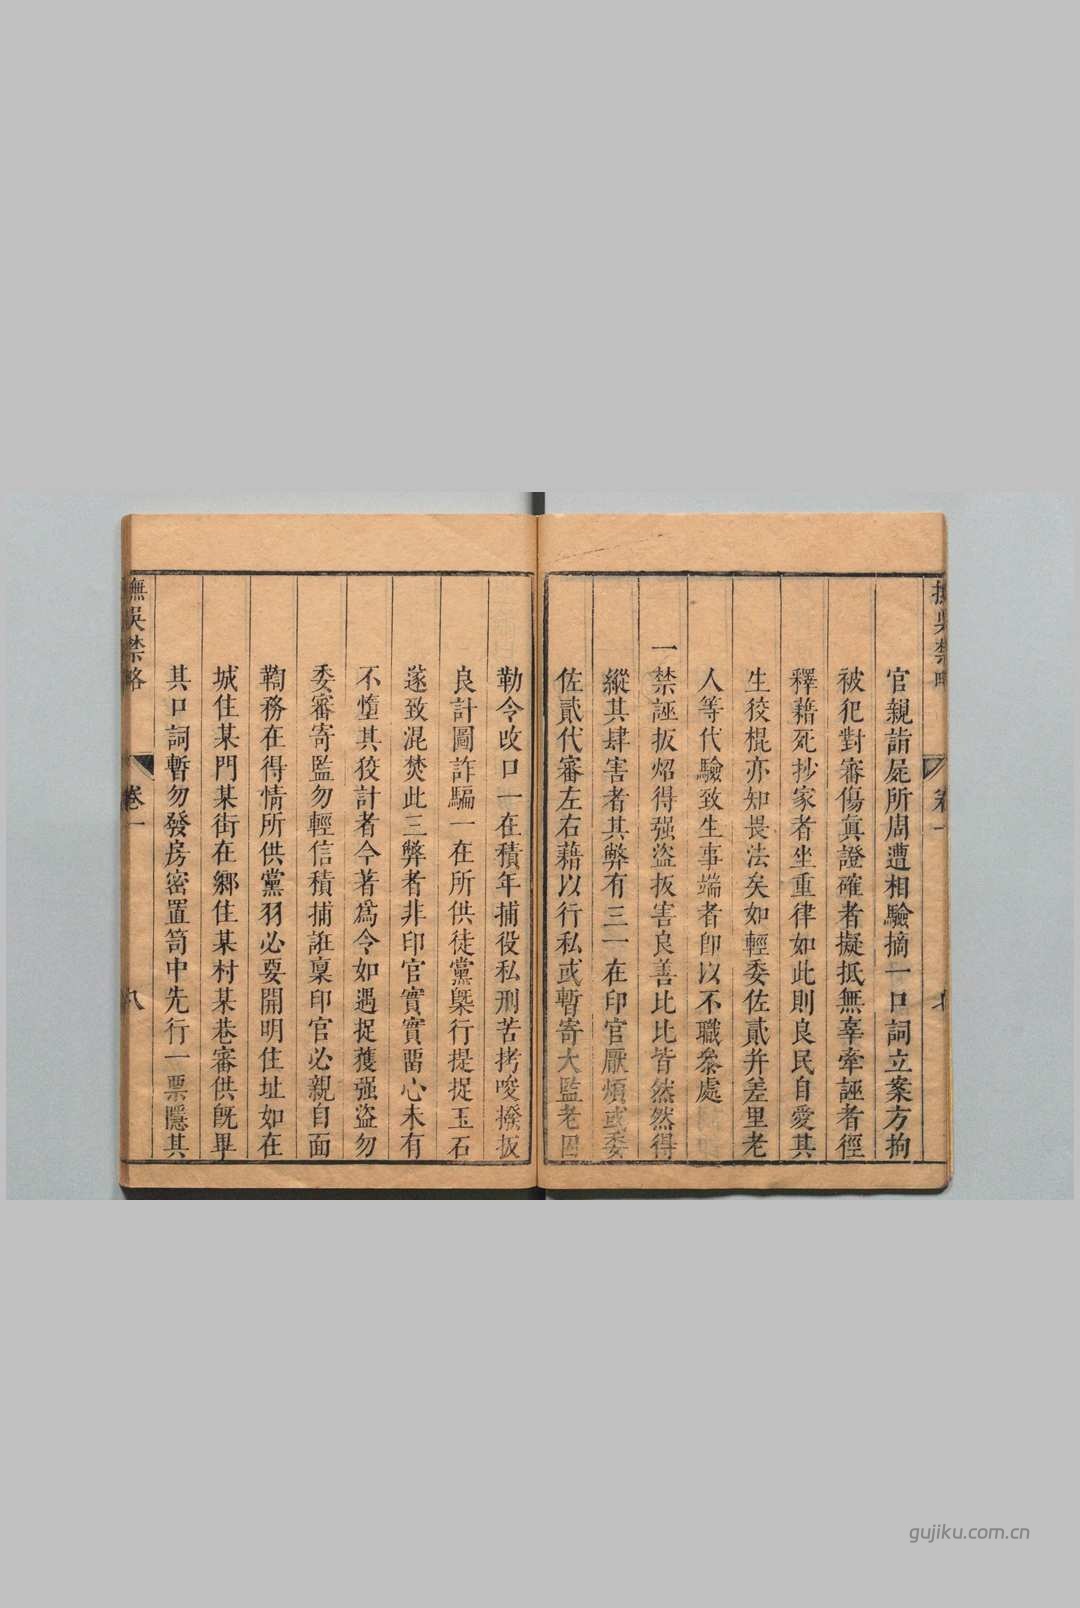 撫吳禁略
卷一
官親詣屍所周遭相驗摘一口詞立案方拘
被犯對審傷真證確者擬抵無辜牽誣者徑
釋藉死抄家者坐重律如此則良民自愛其
生狡棍亦知畏法矣如輕委佐貳并差里老
人等代驗致生事端者卽以不職叅處
一禁誣扳炤得强盜扳害良善比比皆然然得
縱其肆害者其弊有三一在印官厭煩或委
佐貳代審左右藉以行私或暫寄大監老囚
勒令改口一在積年捕役私刑苦拷唆撥扳
良計圖詐騙一在所供徒黨槩行提捉玉石
遂致混焚此三弊者非印官實實畱心未有
不墮其狡計者今著爲令如遇捉獲强盜勿
委審寄監勿輕信積捕誑稟印官必親自面
鞫務在得情所供黨羽必要開明住址如在
城住某門某街在鄉住某村某巷審供旣畢
其口詞暫勿發房密置笥中先行一票隱其
撫吳禁略
卷一
八
gujiku.com.cn